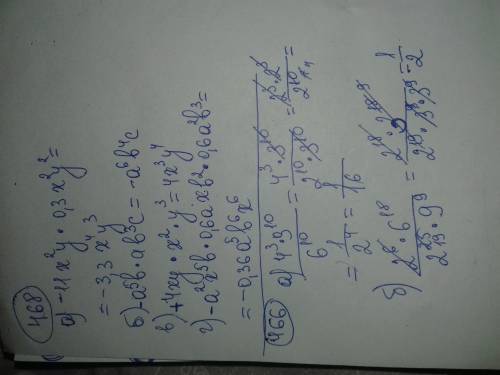 468
а) -11x²y · 0,3x²y² =
= -3,3x⁴y³
б) -a⁵b · ab³c = -a⁶b⁴c
в) +4xy · x² · y³ = 4x³y⁴
г) -a²x⁵b · 0,6axb² · 0,6a²b³ =
= -0,36a⁵b⁶x⁶
466
а) 4³·3¹⁰ / 6¹⁰ = 4³·3¹⁰ / 2¹⁰·3¹⁰ = 2³·2³ / 2¹⁰ =
= 1 / 2⁴ = 1 / 16
б) · 6¹⁸ / 9⁹ = / 2¹⁹·3⁹·3⁹ = 1 / 2